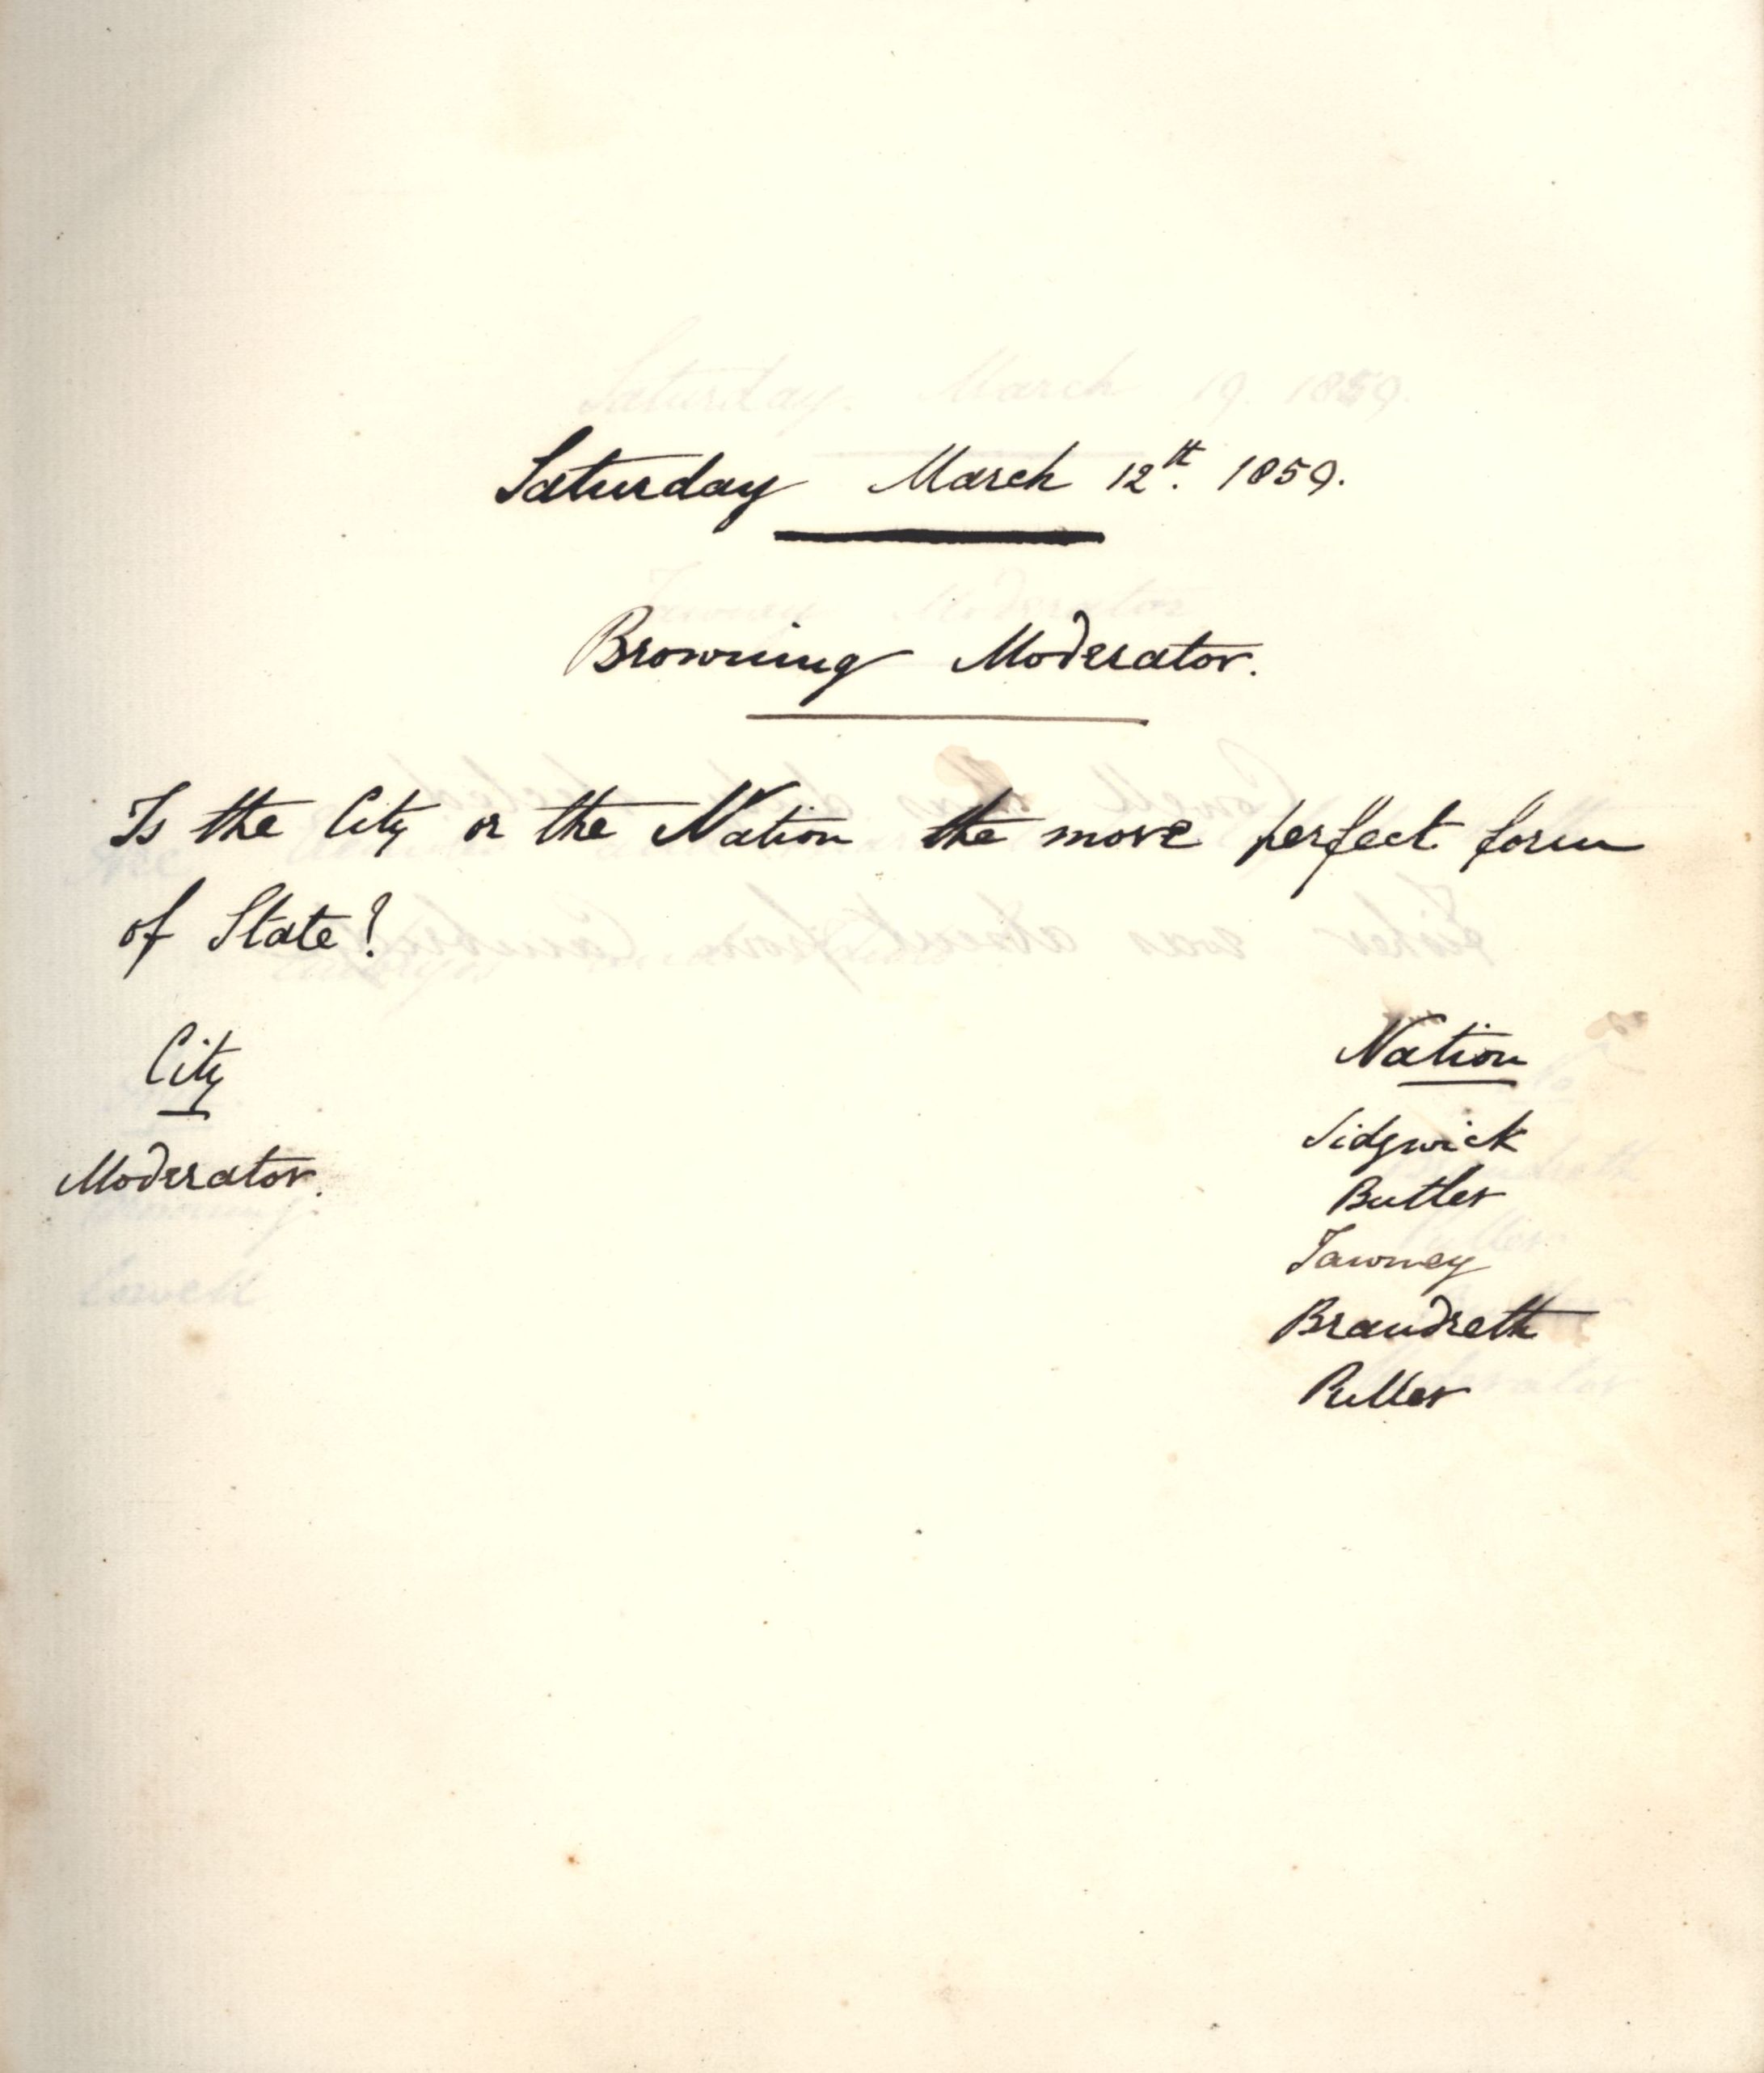 Saturday March 12th. 1859.
Browning Moderator.
Is the City or the Nation the more perfect form
of State?
City
Nation
Moderator.
Sidgwick
Butler
Tawney
Brandreth
Puller